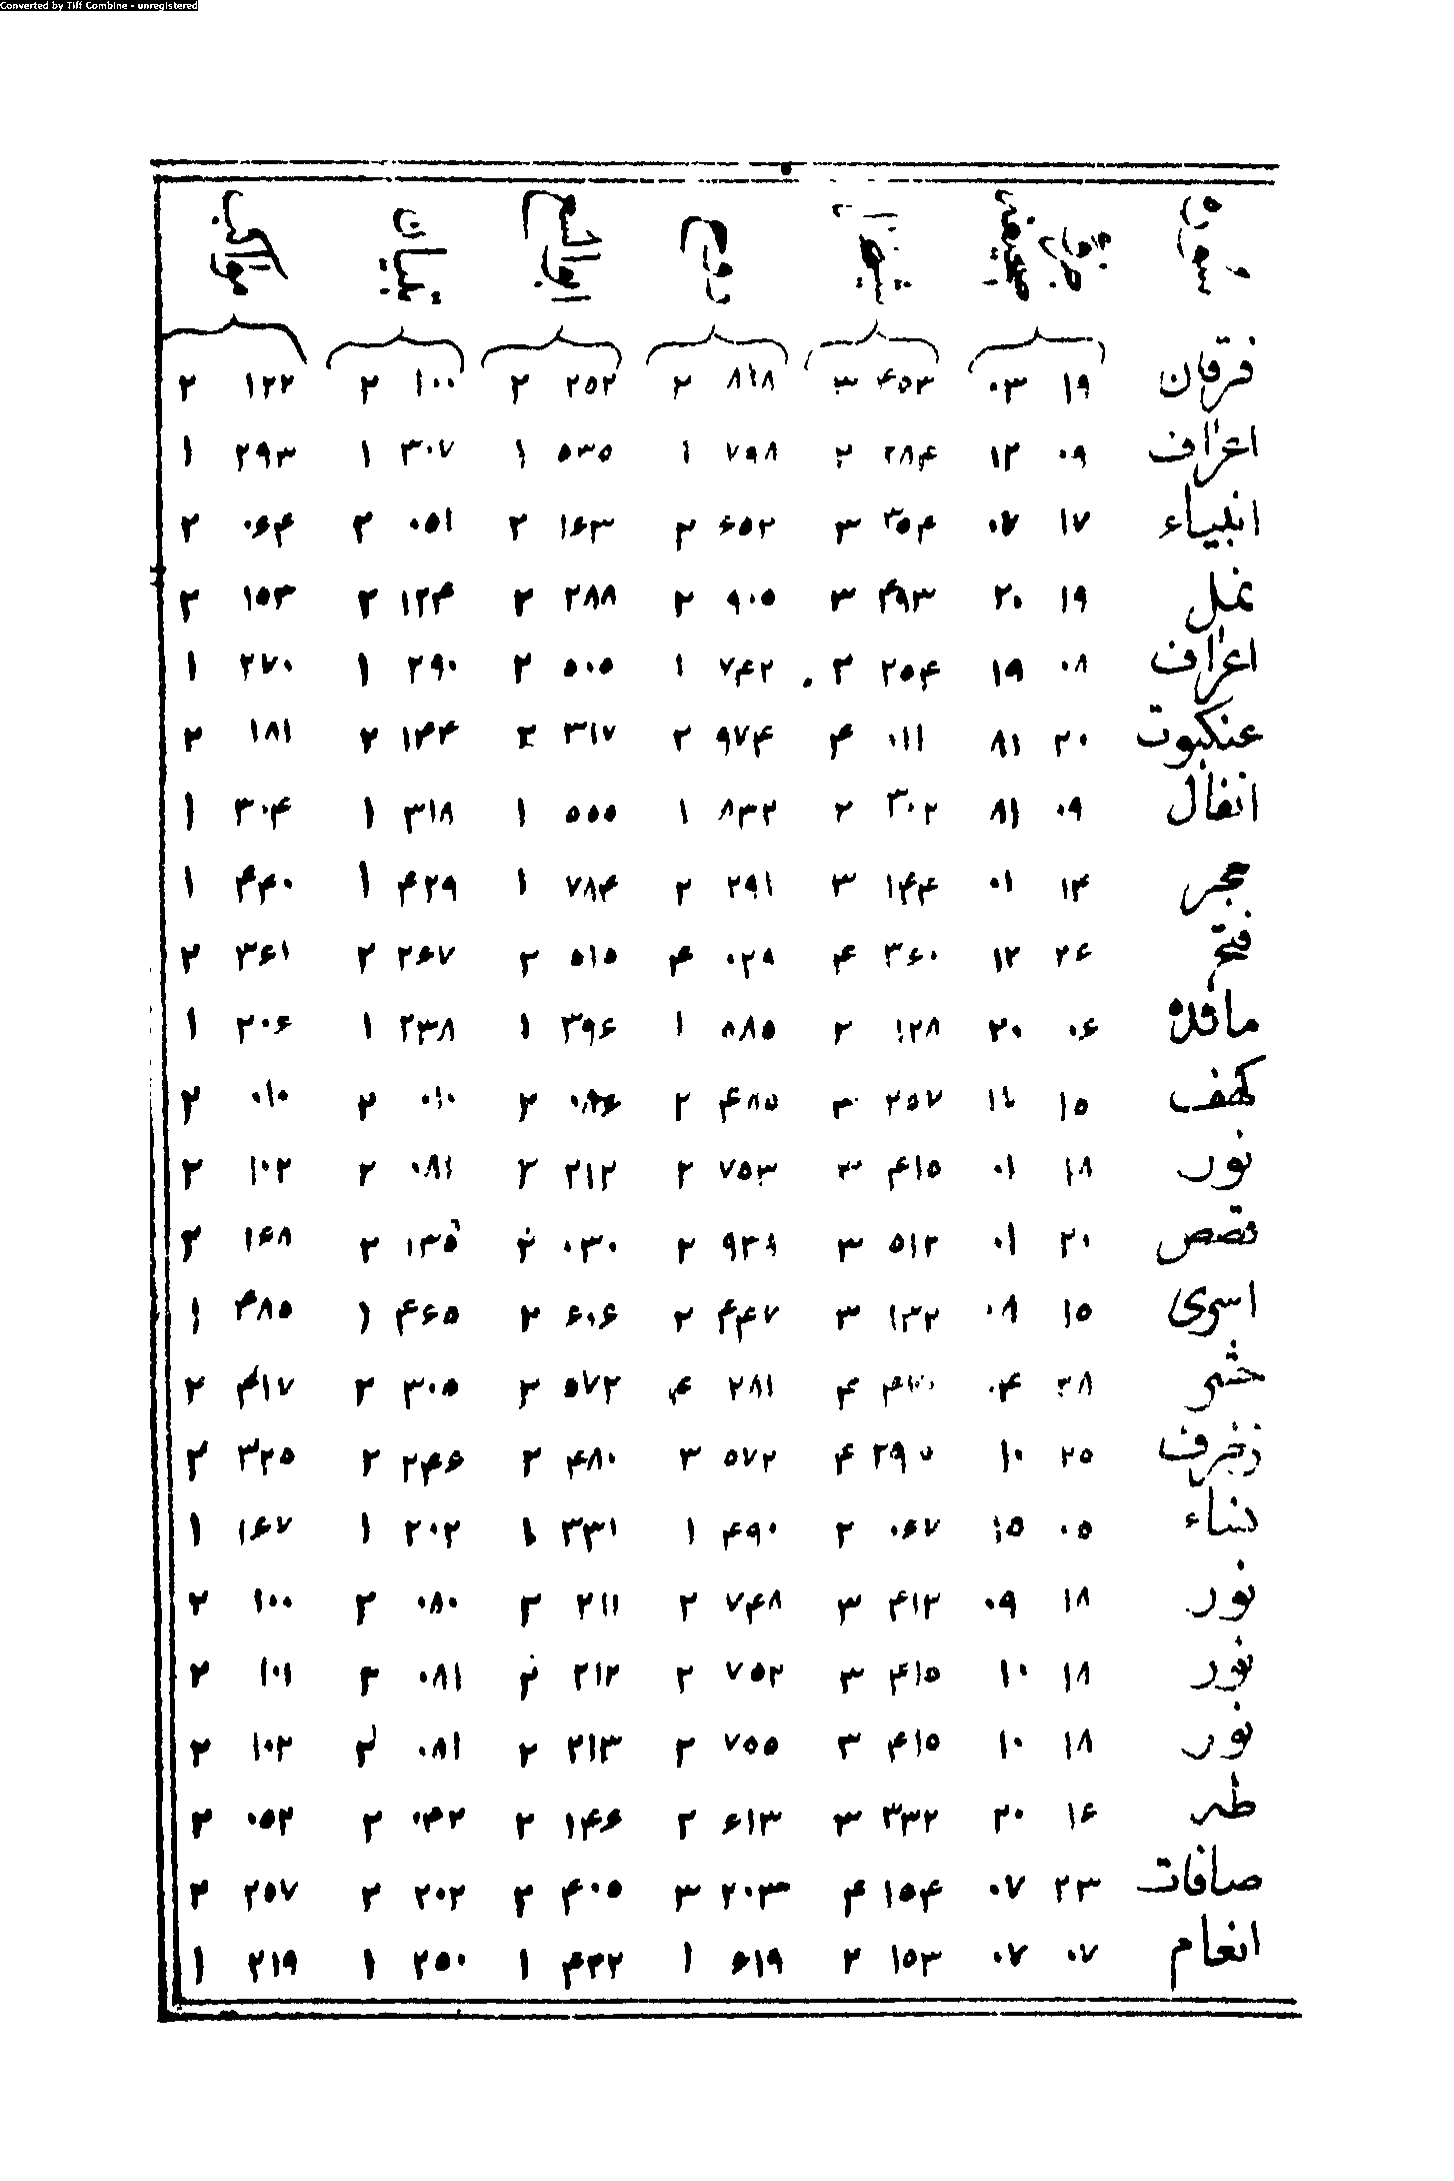 Converted by Tiff Combine - unregistered
سوره جزو صفحه روح ابوالفتوح تبیان
فرقان ۱۹ ۰۳ ۴۵۳ ۳ ۸۱۸ ۲ ۲۵۲ ۲ ۱۰۰ ۲ ۱۲۲ ۲
اعراف ۰۹ ۱۲ ۲۸۴ ۲ ۷۹۸ ۱ ۵۳۵ ۱ ۳۰۷ ۱ ۲۹۳ ۱
انبیاء ۱۷ ۰۷ ۳۵۴ ۳ ۶۵۲ ۲ ۱۶۳ ۲ ۰۵۱ ۲ ۰۶۴ ۲
نمل ۱۹ ۲۰ ۴۹۳ ۳ ۹۰۵ ۲ ۲۸۸ ۲ ۱۲۴ ۲ ۱۵۳ ۲
اعراف ۰۸ ۱۹ ۲۵۴ ۲ ۷۴۲ ۱ ۵۰۵ ۲ ۲۹۰ ۱ ۲۷۰ ۱
عنکبوت ۲۰ ۸۱ ۰۱۱ ۴ ۹۷۴ ۲ ۳۱۷ ۲ ۱۴۴ ۲ ۱۸۱ ۲
انفال ۰۹ ۸۱ ۳۰۲ ۲ ۸۳۲ ۱ ۵۵۵ ۱ ۳۱۸ ۱ ۳۰۴ ۱
حجر ۱۴ ۰۱ ۱۴۴ ۳ ۲۹۱ ۲ ۷۸۴ ۱ ۴۲۹ ۱ ۴۴۰ ۱
فتح ۲۶ ۱۲ ۳۶۰ ۴ ۰۲۹ ۴ ۵۱۵ ۲ ۲۶۷ ۲ ۳۶۱ ۲
مائده ۰۶ ۲۰ ۱۲۸ ۲ ۵۸۵ ۱ ۳۹۶ ۱ ۲۳۸ ۱ ۲۰۶ ۱
کهف ۱۵ ۱۶ ۲۵۷ ۳ ۴۸۵ ۲ ۲ ۰۱۰ ۲ ۰۱۰ ۲
نور ۱۸ ۰۱ ۴۱۵ ۳ ۷۵۳ ۲ ۲۱۲ ۲ ۰۸۱ ۲ ۱۰۲ ۲
قصص ۲۰ ۰۱ ۵۱۲ ۳ ۹۳۹ ۲ ۰۳۰ ۲ ۱۳۵ ۲ ۱۶۸ ۲
اسری ۱۵ ۰۸ ۱۳۲ ۳ ۴۴۷ ۲ ۶۰۶ ۲ ۴۶۵ ۱ ۴۸۵ ۱
حشر ۲۸ ۰۴ ۴ ۲۸۱ ۴ ۵۷۲ ۲ ۳۰۵ ۲ ۴۱۷ ۲
زخرف ۲۵ ۱۰ ۲۹۵ ۴ ۵۷۲ ۳ ۴۸۰ ۲ ۲۴۶ ۲ ۳۲۵ ۲
نساء ۰۵ ۱۵ ۰۶۷ ۲ ۴۹۰ ۱ ۳۳۱ ۱ ۲۰۲ ۱ ۱۶۷ ۱
نور ۱۸ ۰۹ ۴۱۲ ۳ ۷۴۸ ۲ ۲۱۱ ۲ ۰۸۰ ۲ ۱۰۰ ۲
نور ۱۸ ۱۰ ۴۱۵ ۳ ۷۵۲ ۲ ۲۱۲ ۲ ۰۸۱ ۲ ۱۰۱ ۲
نور ۱۸ ۱۰ ۴۱۵ ۳ ۷۵۵ ۲ ۲۱۳ ۲ ۰۸۱ ۲ ۱۰۲ ۲
طه ۱۶ ۲۰ ۳۳۲ ۳ ۶۱۳ ۲ ۱۴۶ ۲ ۰۴۲ ۲ ۰۵۲ ۲
صافات ۲۳ ۰۷ ۱۵۴ ۴ ۲۰۳ ۳ ۴۰۵ ۲ ۲۰۲ ۲ ۲۵۷ ۲
انعام ۰۷ ۰۷ ۱۵۳ ۲ ۶۱۹ ۱ ۴۲۲ ۱ ۲۵۰ ۱ ۲۱۹ ۱